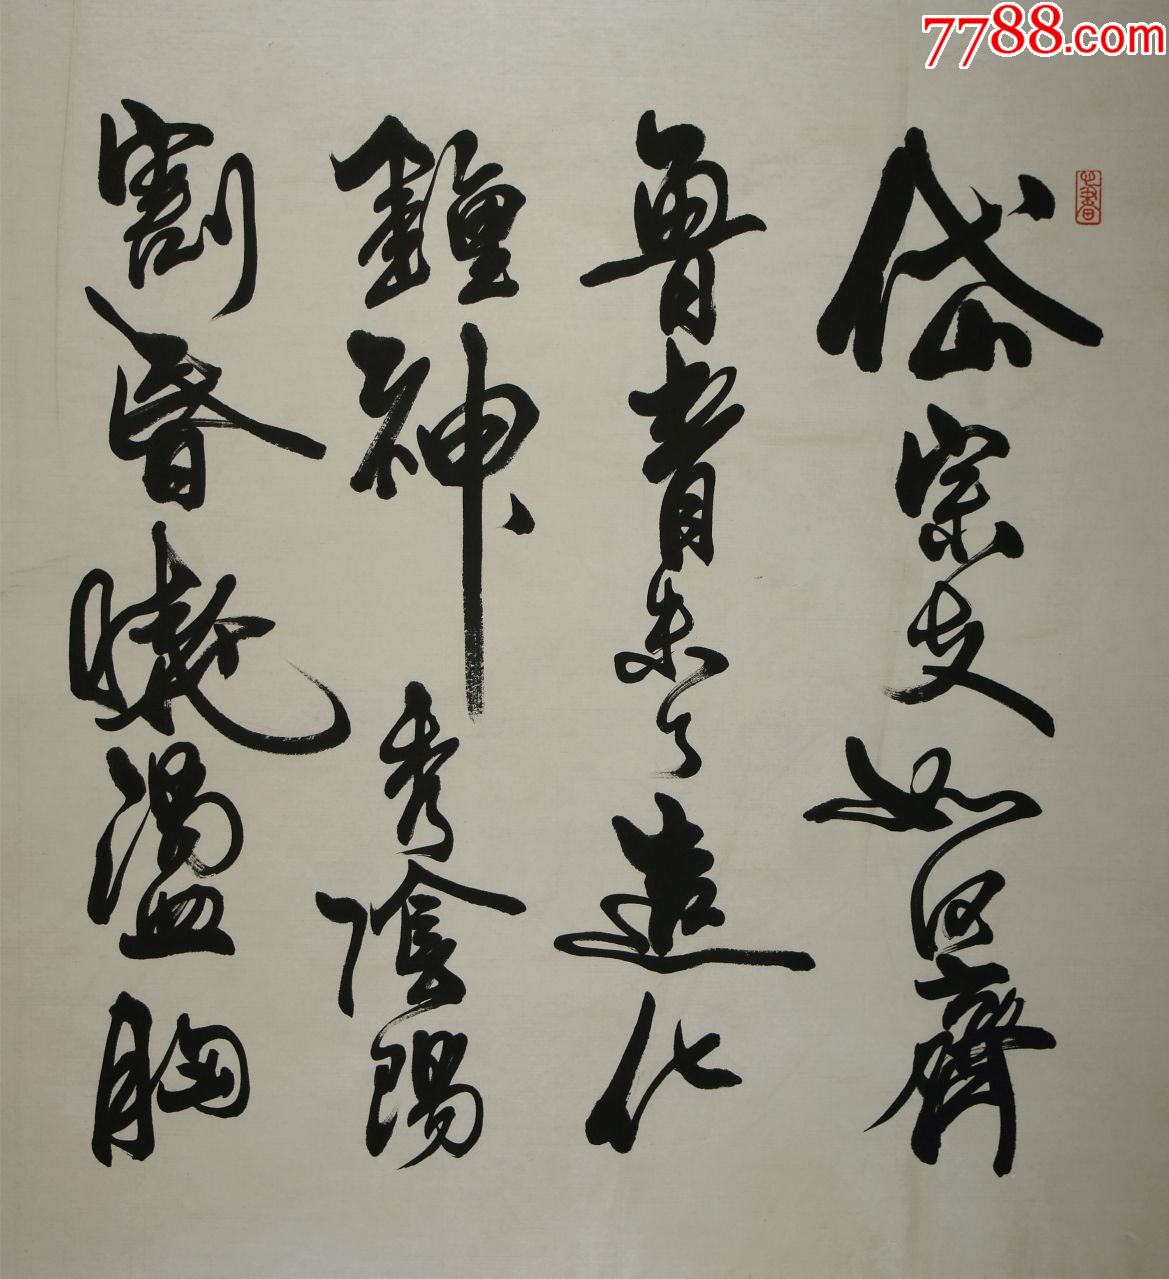 7788.com
岱宗夫如何齊
魯青未了造化
鍾神秀陰陽
割昏曉盪胸